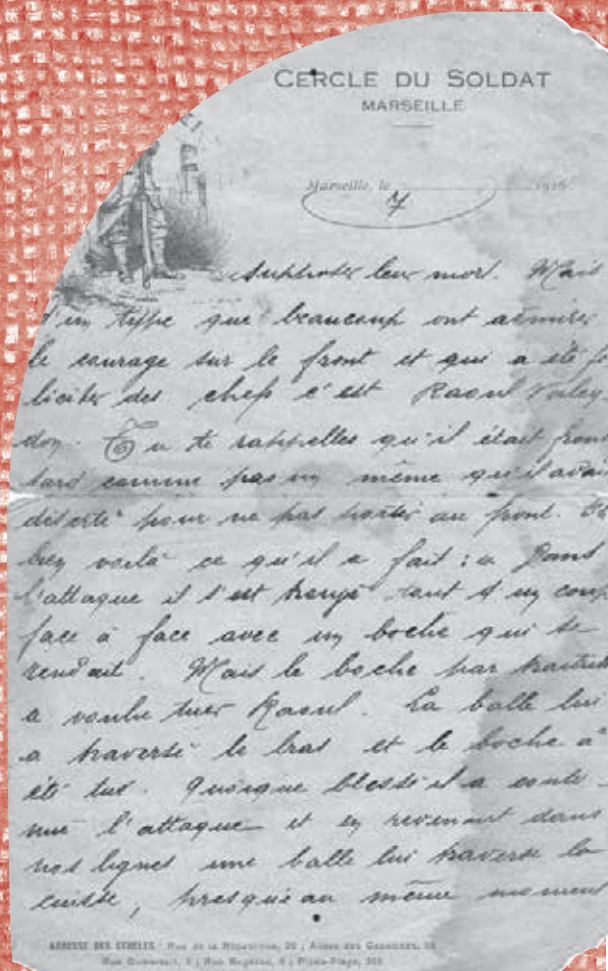 CERCLE DU SOLDAT
MARSEILLE
Marseille, le 7 1916
supporter leur mort. Mais
d'un type que beaucoup ont admirer
le courage sur le front et qui a été fé
liciter des chefs c'est Raoul
don. Tu te rappelles qu'il était
tard comme pas un même qu'il avait
déserté pour ne pas partir au front. Eh
bien voilà ce qu'il a fait : Dans
l'attaque il s'est trouvé tout d'un coup
face à face avec un boche qui se
rendait. Mais le boche par traitrise
a voulu tuer Raoul. La balle lui
a traversé le bras et le boche a
été tué. Quoique blessé il a conti-
nué l'attaque et en revenant dans
nos lignes une balle lui traverse la
cuisse, presqu'au même moment
ADRESSE DES CERCLES : Rue de la République, 20 ; Allées des Capucines,